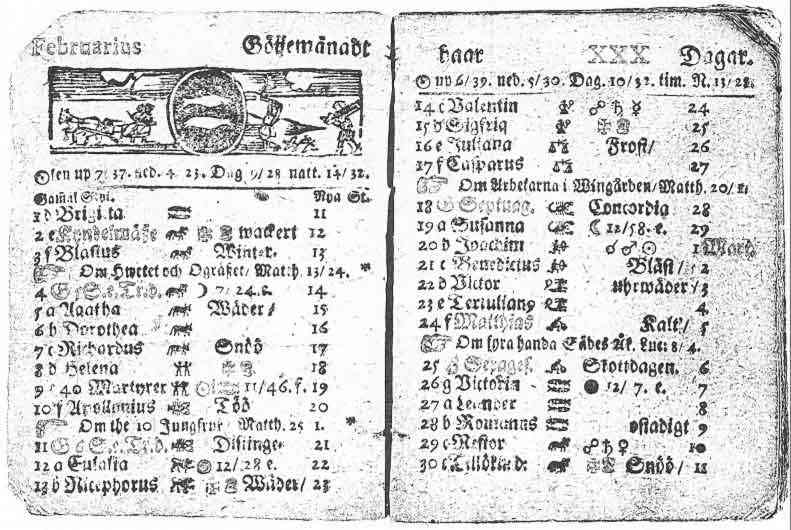 Februarius Göijemånadt
Solen up 7/37. ned. 4 23. Dag 9/28 natt. 14/32.
Gamal Nya St.
1 d Brigita 11
2 e Kyndelmässe wackert 12
3 f Blasius Winter. 13
Om Hwetet och Ogräset/ Matth 13/24.
4 G 5 S. e. Tr. d. 7/24. 14
5 a Agatha Wäder/ 15
6 b Dorothea 16
7 c Richardus Snöö 17
8 d Helena 18
9 e 40 Martyrer 11/46. f. 19
10 f Apollonius Töö 20
Om the 10 Jungfrur/ Matth. 25 1.
11 G 6 S. e. Tr. d. 21
12 a Eulalia 12/28 e. 22
13 b Nicephorus Wäder/ 23
haar XXX Dagar.
up 6/39. ned. 5/30. Dag. 10/32. tim. N. 13/28.
14 c Valentin ☍ ♄ ☿ 24
15 d Sigfrid 25
16 e Juliana Frost/ 26
17 f Casparus 27
Om Arbetarna i Wingården/ Matth. 20/1.
18 G Septuag. Concordia 28
19 a Susanna ☾ 12/58. e. 29
20 b Joachim ☌ ♂ ☉ 1 Mart.
21 c Benedictus Bläst/ 2
22 d Victor uhrwäder/ 3
23 e 4
24 f Matthias Kalt/ 5
Om fyra handa Sädes Åk. Luc: 8/4.
25 G Sexages. Skottdagen. 6
26 g Victorin ● 12/7. e. 7
27 a Leander 8
28 b Romanus ostadigt 9
29 c Nestor ☍ ♄ ♀ 10
30 c Snöö/ 11